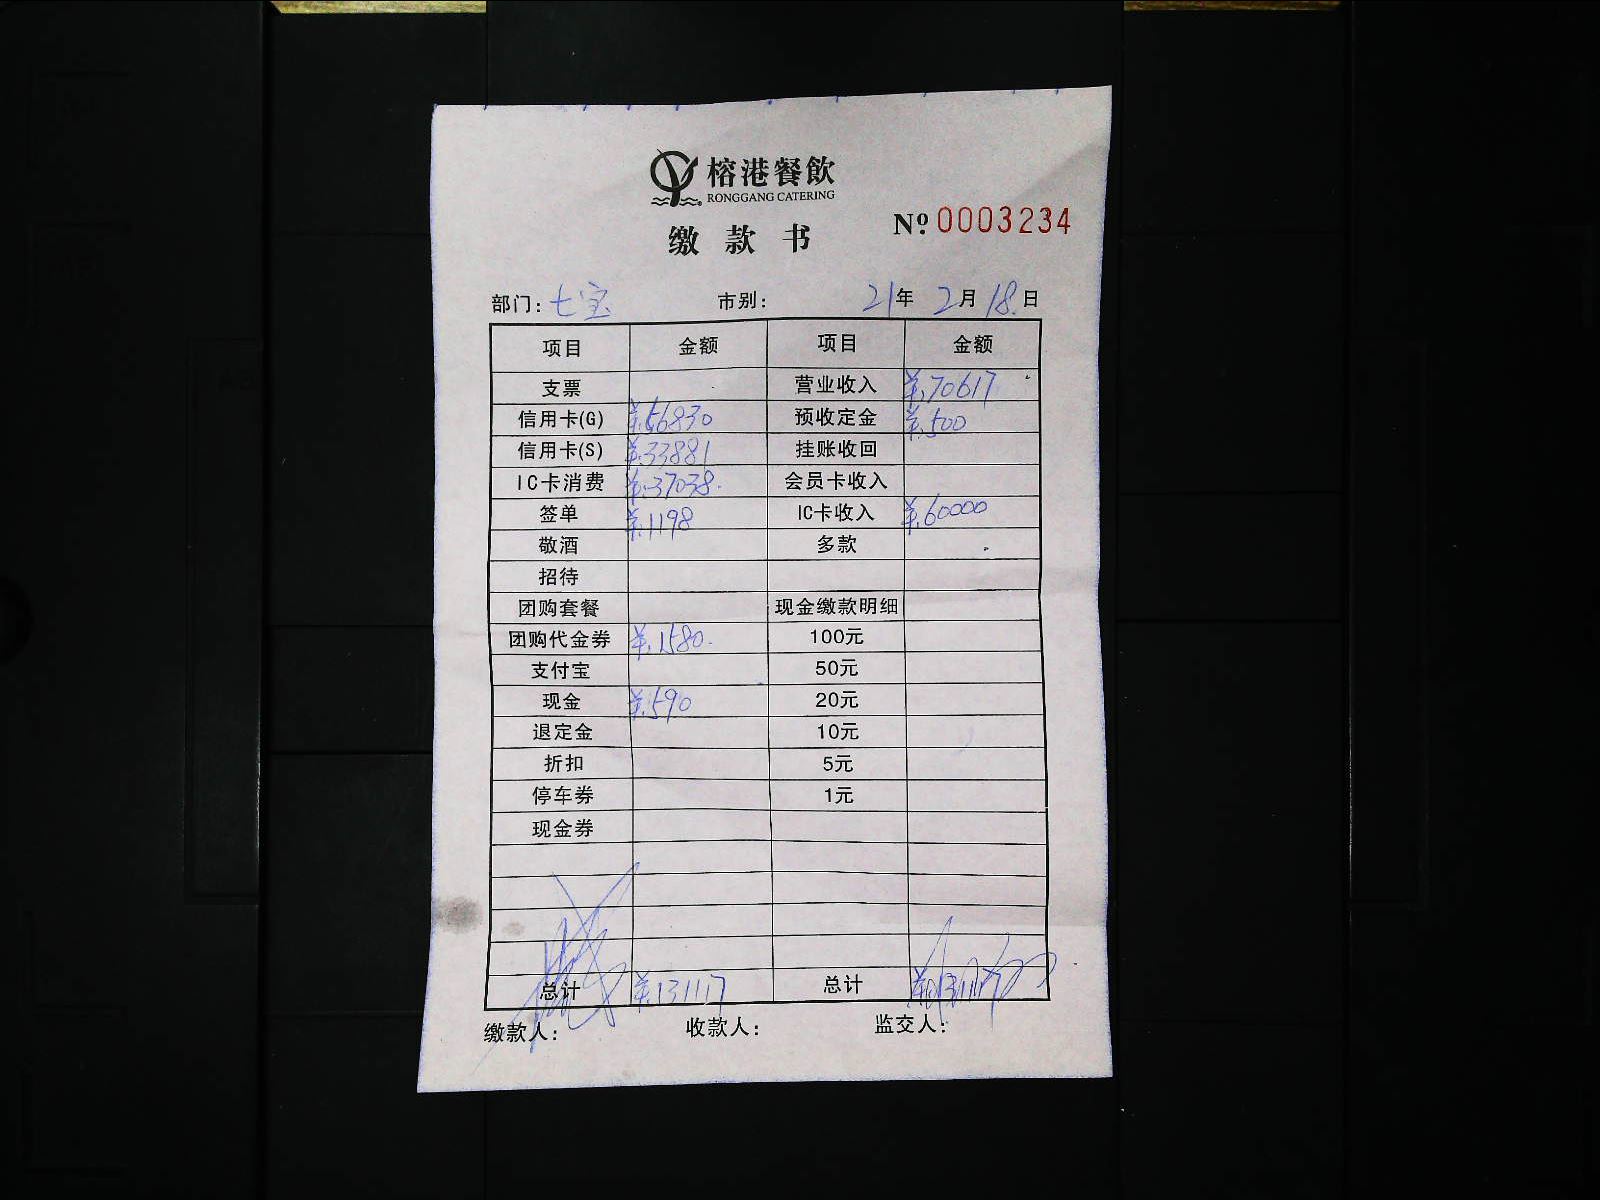 榕港餐飲
RONGGANG CATERING
缴款书
№ 0003234
部门：七宝 市别： 21年 2月 18日
项目 金额 项目 金额
支票 营业收入 ¥.70617
信用卡(G) ¥.56830 预收定金 ¥.500
信用卡(S) ¥.33881 挂账收回
IC卡消费 ¥.37038. 会员卡收入
签单 ¥.1198 IC卡收入 ¥.60000
敬酒 多款
招待
团购套餐 现金缴款明细
团购代金券 ¥.1580. 100元
支付宝 50元
现金 ¥.590 20元
退定金 10元
折扣 5元
停车券 1元
现金券
总计 ¥.131117 总计 ¥.131117
缴款人： 收款人： 监交人：